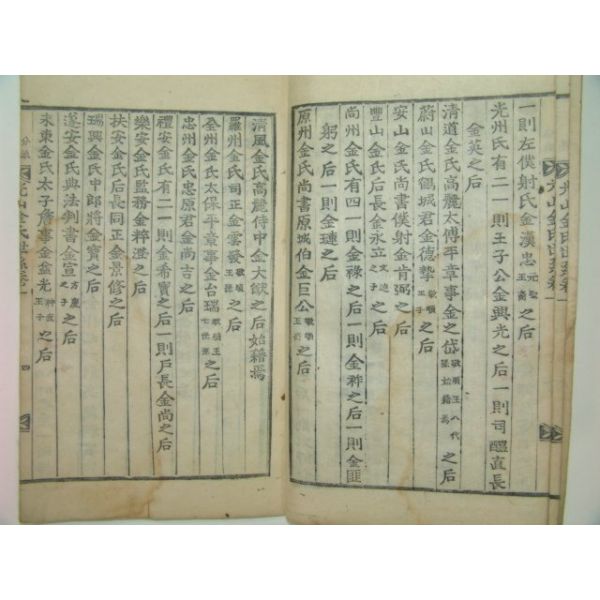 一則左僕射氏金漢忠元聖王裔之后
光州氏有二一則王子公金興光之后一則司醞直長
金英之后
清道金氏高麗太傅平章事金之岱敬順王八代孫始籍焉之后
蔚山金氏鶴城君金德摯敬順王子之后
安山金氏尚書僕射金肯弼之后
豊山金氏后長金永立文迪之子之后
尚州金氏有四一則金祿之后一則金祚之后一則金匪
躬之后一則金璉之后
原州金氏尚書原城伯金巨公敬順王裔之后
清風金氏高麗侍中金大猷之后始籍焉
羅州金氏司正金雲發敬順王孫之后
全州金氏太保平章事金台瑞敬順王七世孫之后
忠州金氏忠原君金南吉之后
禮安金氏有二一則金希寶之后一則戶長金尚之后
樂安金氏監務金粹澄之后
扶安金氏后長同正金景修之后
瑞興金氏中郎將金寶之后
遂安金氏典法判書金宣方慶之子之后
來東金氏太子詹事金益光神武王子之后
光山金氏世系卷一
四